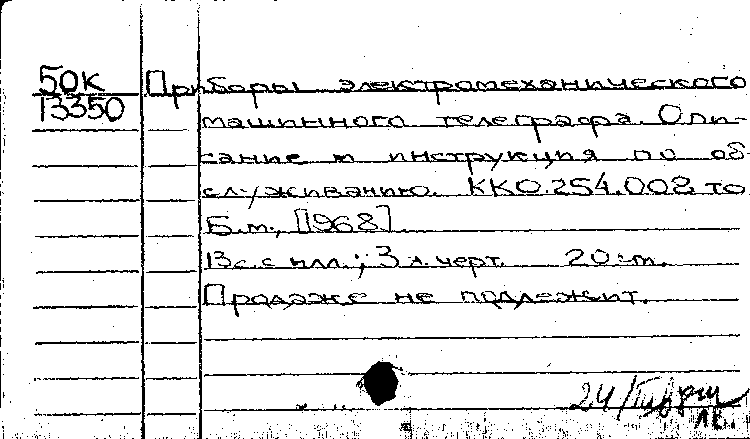 50К Приборы электромеханического
13350 машинного телеграфа. Опи-
сание и инструкция по об-
служиванию. ККО.254.002 то
Б.м., [1968].
13 с. с илл.; 3 л. черт. 20 см.
Продаже не подлежит.
24/